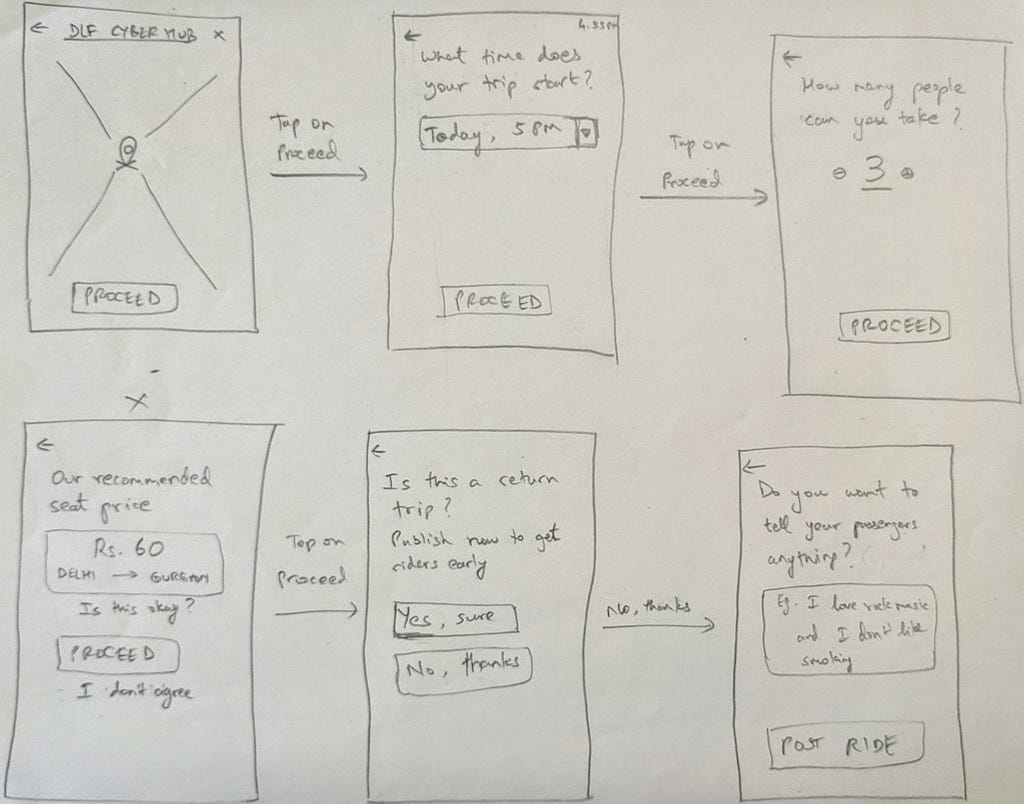 ← DLF CYBER HUB ×
PROCEED
Tap on
Proceed
4.55PM
←
What time does
your trip start?
Today, 5 PM
PROCEED
Tap on
Proceed
←
How many people
can you take?
⊖ 3 ⊕
PROCEED
←
Our recommended
seat price
Rs. 60
DELHI → GURGAON
Is this okay?
PROCEED
I don't agree
Tap on
Proceed
←
Is this a return
trip?
Publish now to get
riders early
Yes, sure
No, thanks
No, thanks
←
Do you want to
tell your passengers
anything?
Eg. I love rock music
and I don't like
smoking
POST RIDE